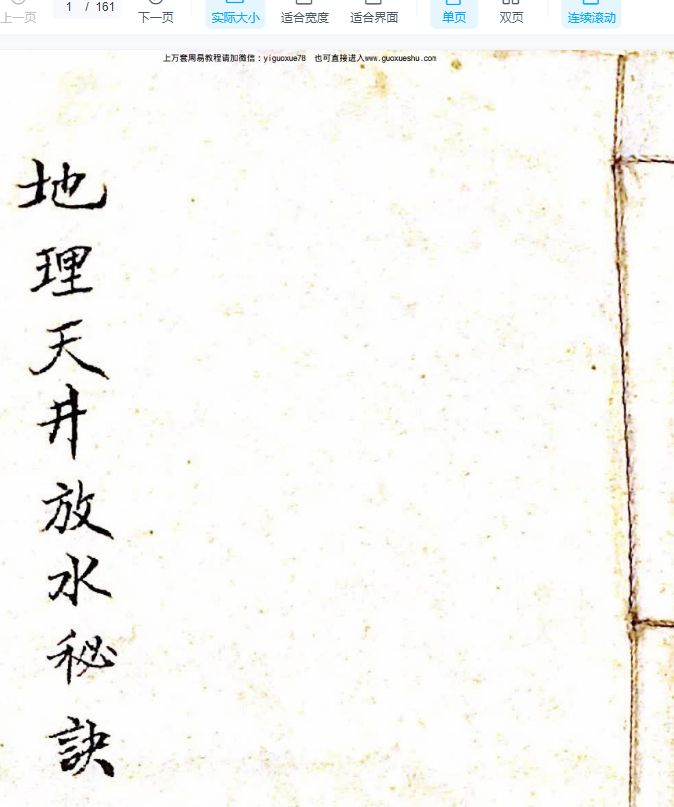 上一页 1 / 161 下一页 实际大小 适合宽度 适合界面 单页 双页 连续滚动
上万套周易教程请加微信：yiguoxue78 也可直接进入www.guoxueshu.com
地理天井放水秘訣